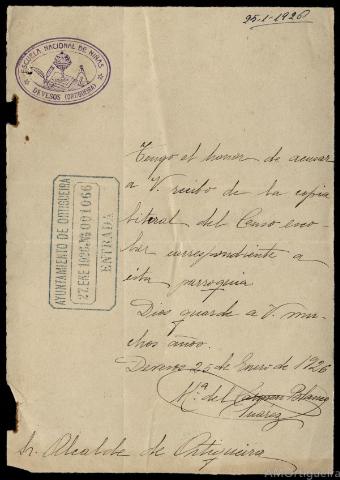 25-1-1926
ESCUELA NACIONAL DE NIÑAS
DEVESOS (ORTIGUEIRA)
Tengo el honor de acusar
a V. recibo de la copia
literal del Censo esco-
lar correspondiente a
esta parroquia
Dios guarde a V. mu-
chos años.
Devesos 25 de Enero de 1926
Mª del Carmen Blanco
Suarez
AYUNTAMIENTO DE ORTIGUEIRA
27.ENE 1926 * Nº 001066
ENTRADA
Sr. Alcalde de Ortigueira
AMOrtigueira